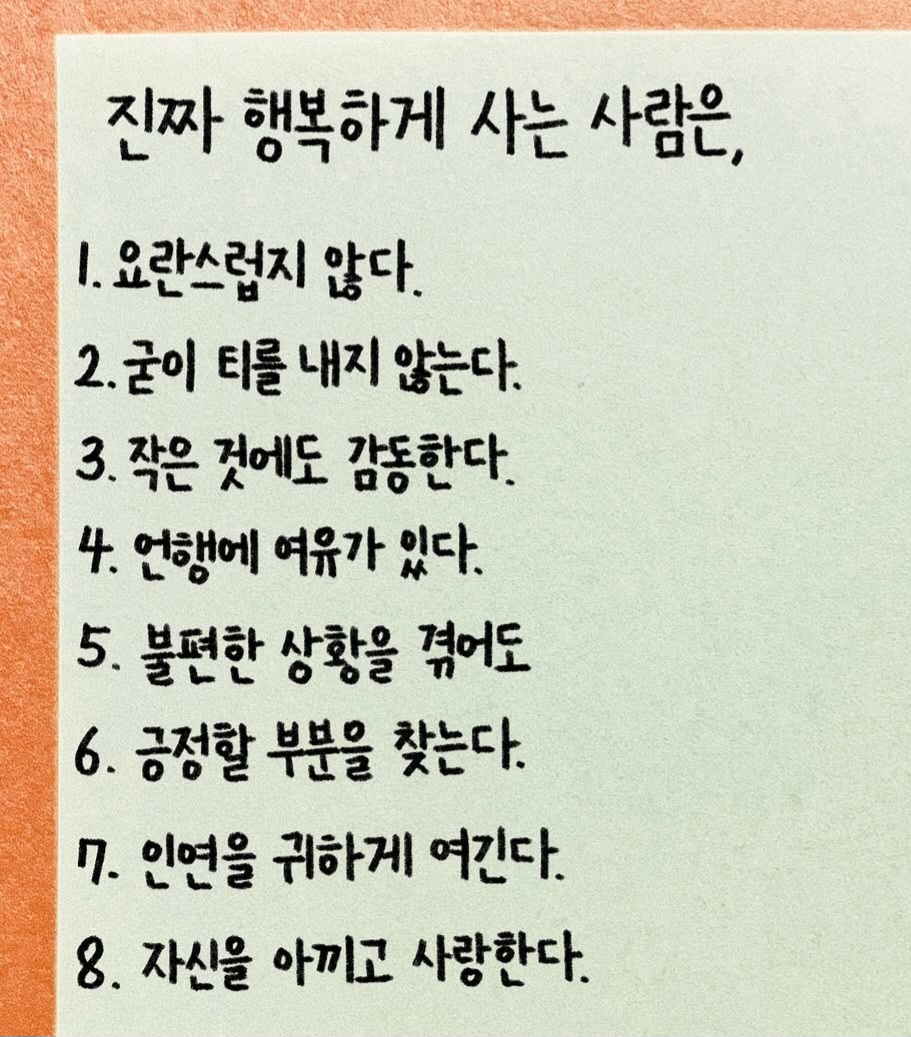 진짜 행복하게 사는 사람은,
1. 요란스럽지 않다.
2. 굳이 티를 내지 않는다.
3. 작은 것에도 감동한다.
4. 언행에 여유가 있다.
5. 불편한 상황을 겪어도
6. 긍정할 부분을 찾는다.
7. 인연을 귀하게 여긴다.
8. 자신을 아끼고 사랑한다.